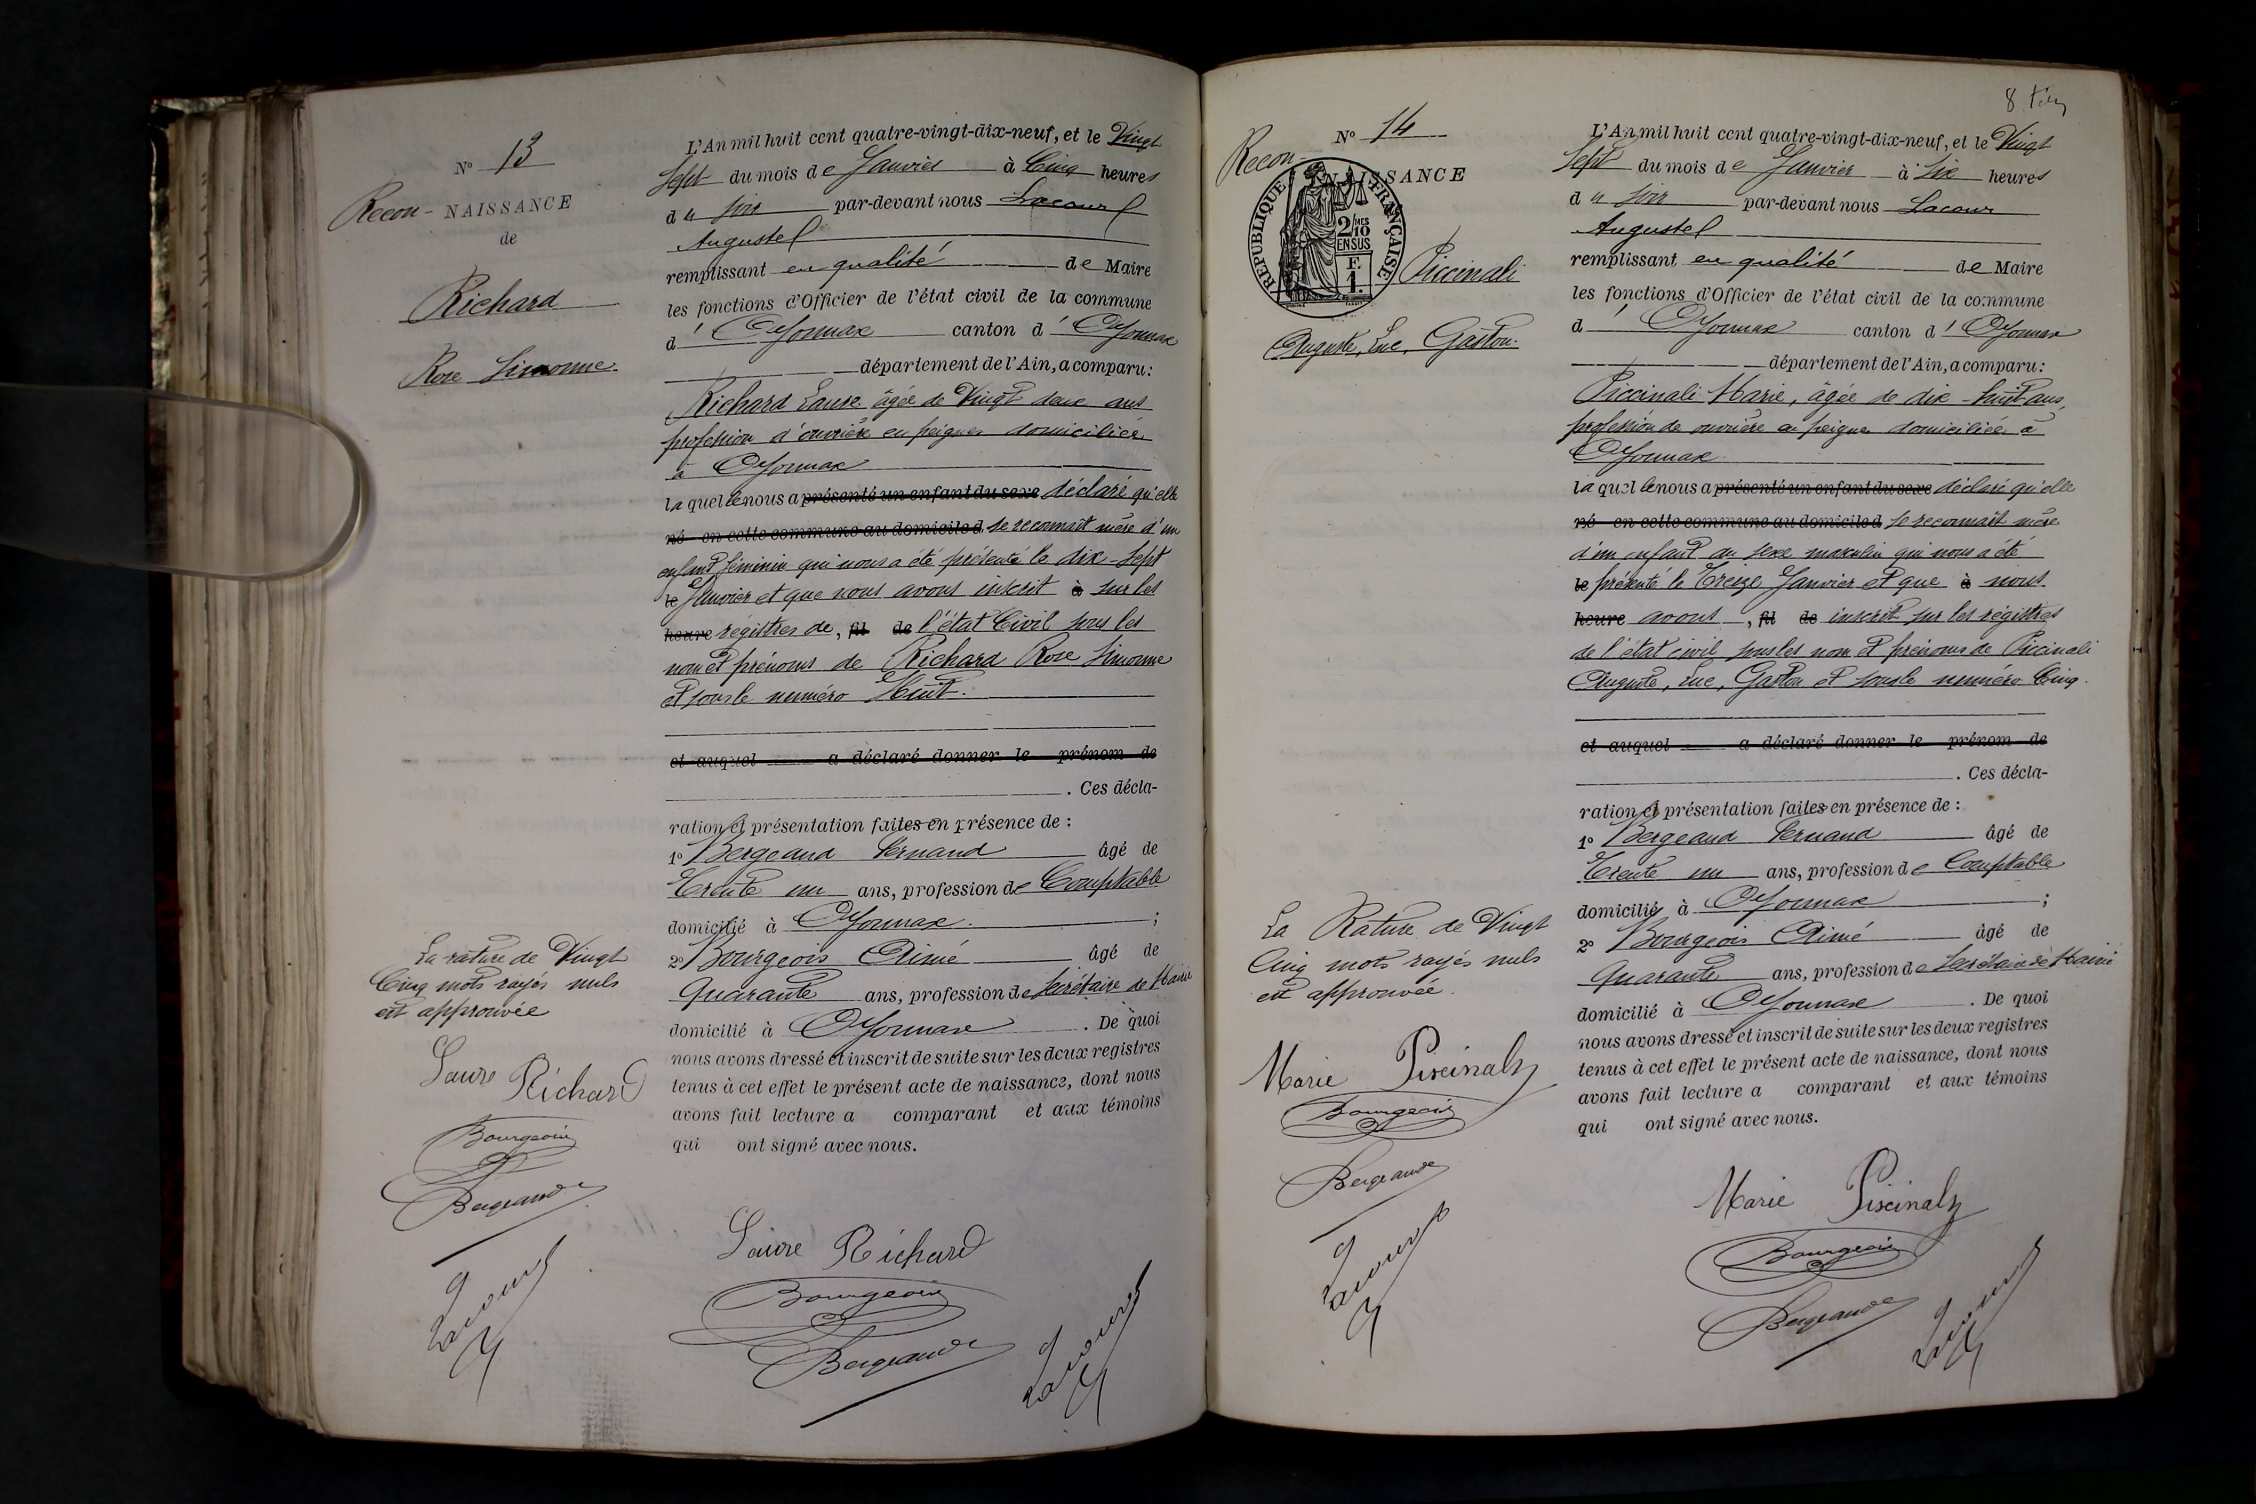 N° 13
Recon-NAISSANCE
de
Richard
Rose Simonne
L'An mil huit cent quatre-vingt-dix-neuf, et le Vingt
Sept du mois de Janvier à Cinq heures
du soir par-devant nous Lacour
Auguste
remplissant en qualité de Maire
les fonctions d'Officier de l'état civil de la commune
d' Oyonnax canton d' Oyonnax
département de l'Ain, a comparu:
Richard Laure âgée de Vingt deux ans
profession d'ouvrière en peignes domiciliée
à Oyonnax
laquelle nous a présenté un enfant du sexe déclaré qu'elle
né en cette commune au domicile d se reconnaît mère d'un
enfant féminin qui nous a été présenté le dix-sept
le Janvier et que nous avons inscrit à sur les
heure régistres de, fil de l'état Civil sous les
nom et prénoms de Richard Rose Simonne
et sous le numéro Huit.
et auquel a déclaré donner le prénom de
. Ces décla-
ration et présentation faites en présence de :
1° Bergeaud Fernand âgé de
Trente un ans, profession de Comptable
domicilié à Oyonnax ;
2° Bourgeois Aimé âgé de
Quarante ans, profession de Secrétaire de Mairie
domicilié à Oyonnax . De quoi
nous avons dressé et inscrit de suite sur les deux registres
tenus à cet effet le présent acte de naissance, dont nous
avons fait lecture a comparant et aux témoins
qui ont signé avec nous.
La rature de Vingt
Cinq mots rayés nuls
est approuvée
Laure Richard
Bourgeois
Bergeaud
Lacour
Laure Richard
Bourgeois
Bergeaud
Lacour
N° 14
Recon-NAISSANCE
REPUBLIQUE FRANÇAISE
2/10 MES
EN SUS
F.
1.
Piccinali
Auguste, Luc, Gaston.
L'An mil huit cent quatre-vingt-dix-neuf, et le Vingt
Sept du mois de Janvier à Six heures
du soir par-devant nous Lacour
Auguste
remplissant en qualité de Maire
les fonctions d'Officier de l'état civil de la commune
d' Oyonnax canton d' Oyonnax
département de l'Ain, a comparu:
Piccinali Marie, âgée de dix-huit ans,
profession de ouvrière en peignes domiciliée à
Oyonnax
laquelle nous a présenté un enfant du sexe déclaré qu'elle
né en cette commune au domicile d se reconnaît mère
d'un enfant du sexe masculin qui nous a été
le présenté le Treize Janvier et que à nous
heure avons , fil de inscrit sur les régistres
de l'état civil sous les nom et prénoms de Piccinali
Auguste, Luc, Gaston et sous le numéro Cinq.
et auquel a déclaré donner le prénom de
. Ces décla-
ration et présentation faites en présence de :
1° Bergeaud Fernand âgé de
Trente un ans, profession de Comptable
domicilié à Oyonnax ;
2° Bourgeois Aimé âgé de
Quarante ans, profession de Secrétaire de Mairie
domicilié à Oyonnax . De quoi
nous avons dressé et inscrit de suite sur les deux registres
tenus à cet effet le présent acte de naissance, dont nous
avons fait lecture a comparant et aux témoins
qui ont signé avec nous.
La Rature de Vingt
Cinq mots rayés nuls
est approuvée.
Marie Piscinaly
Bourgeois
Bergeaud
Lacour
Marie Piscinaly
Bourgeois
Bergeaud
Lacour